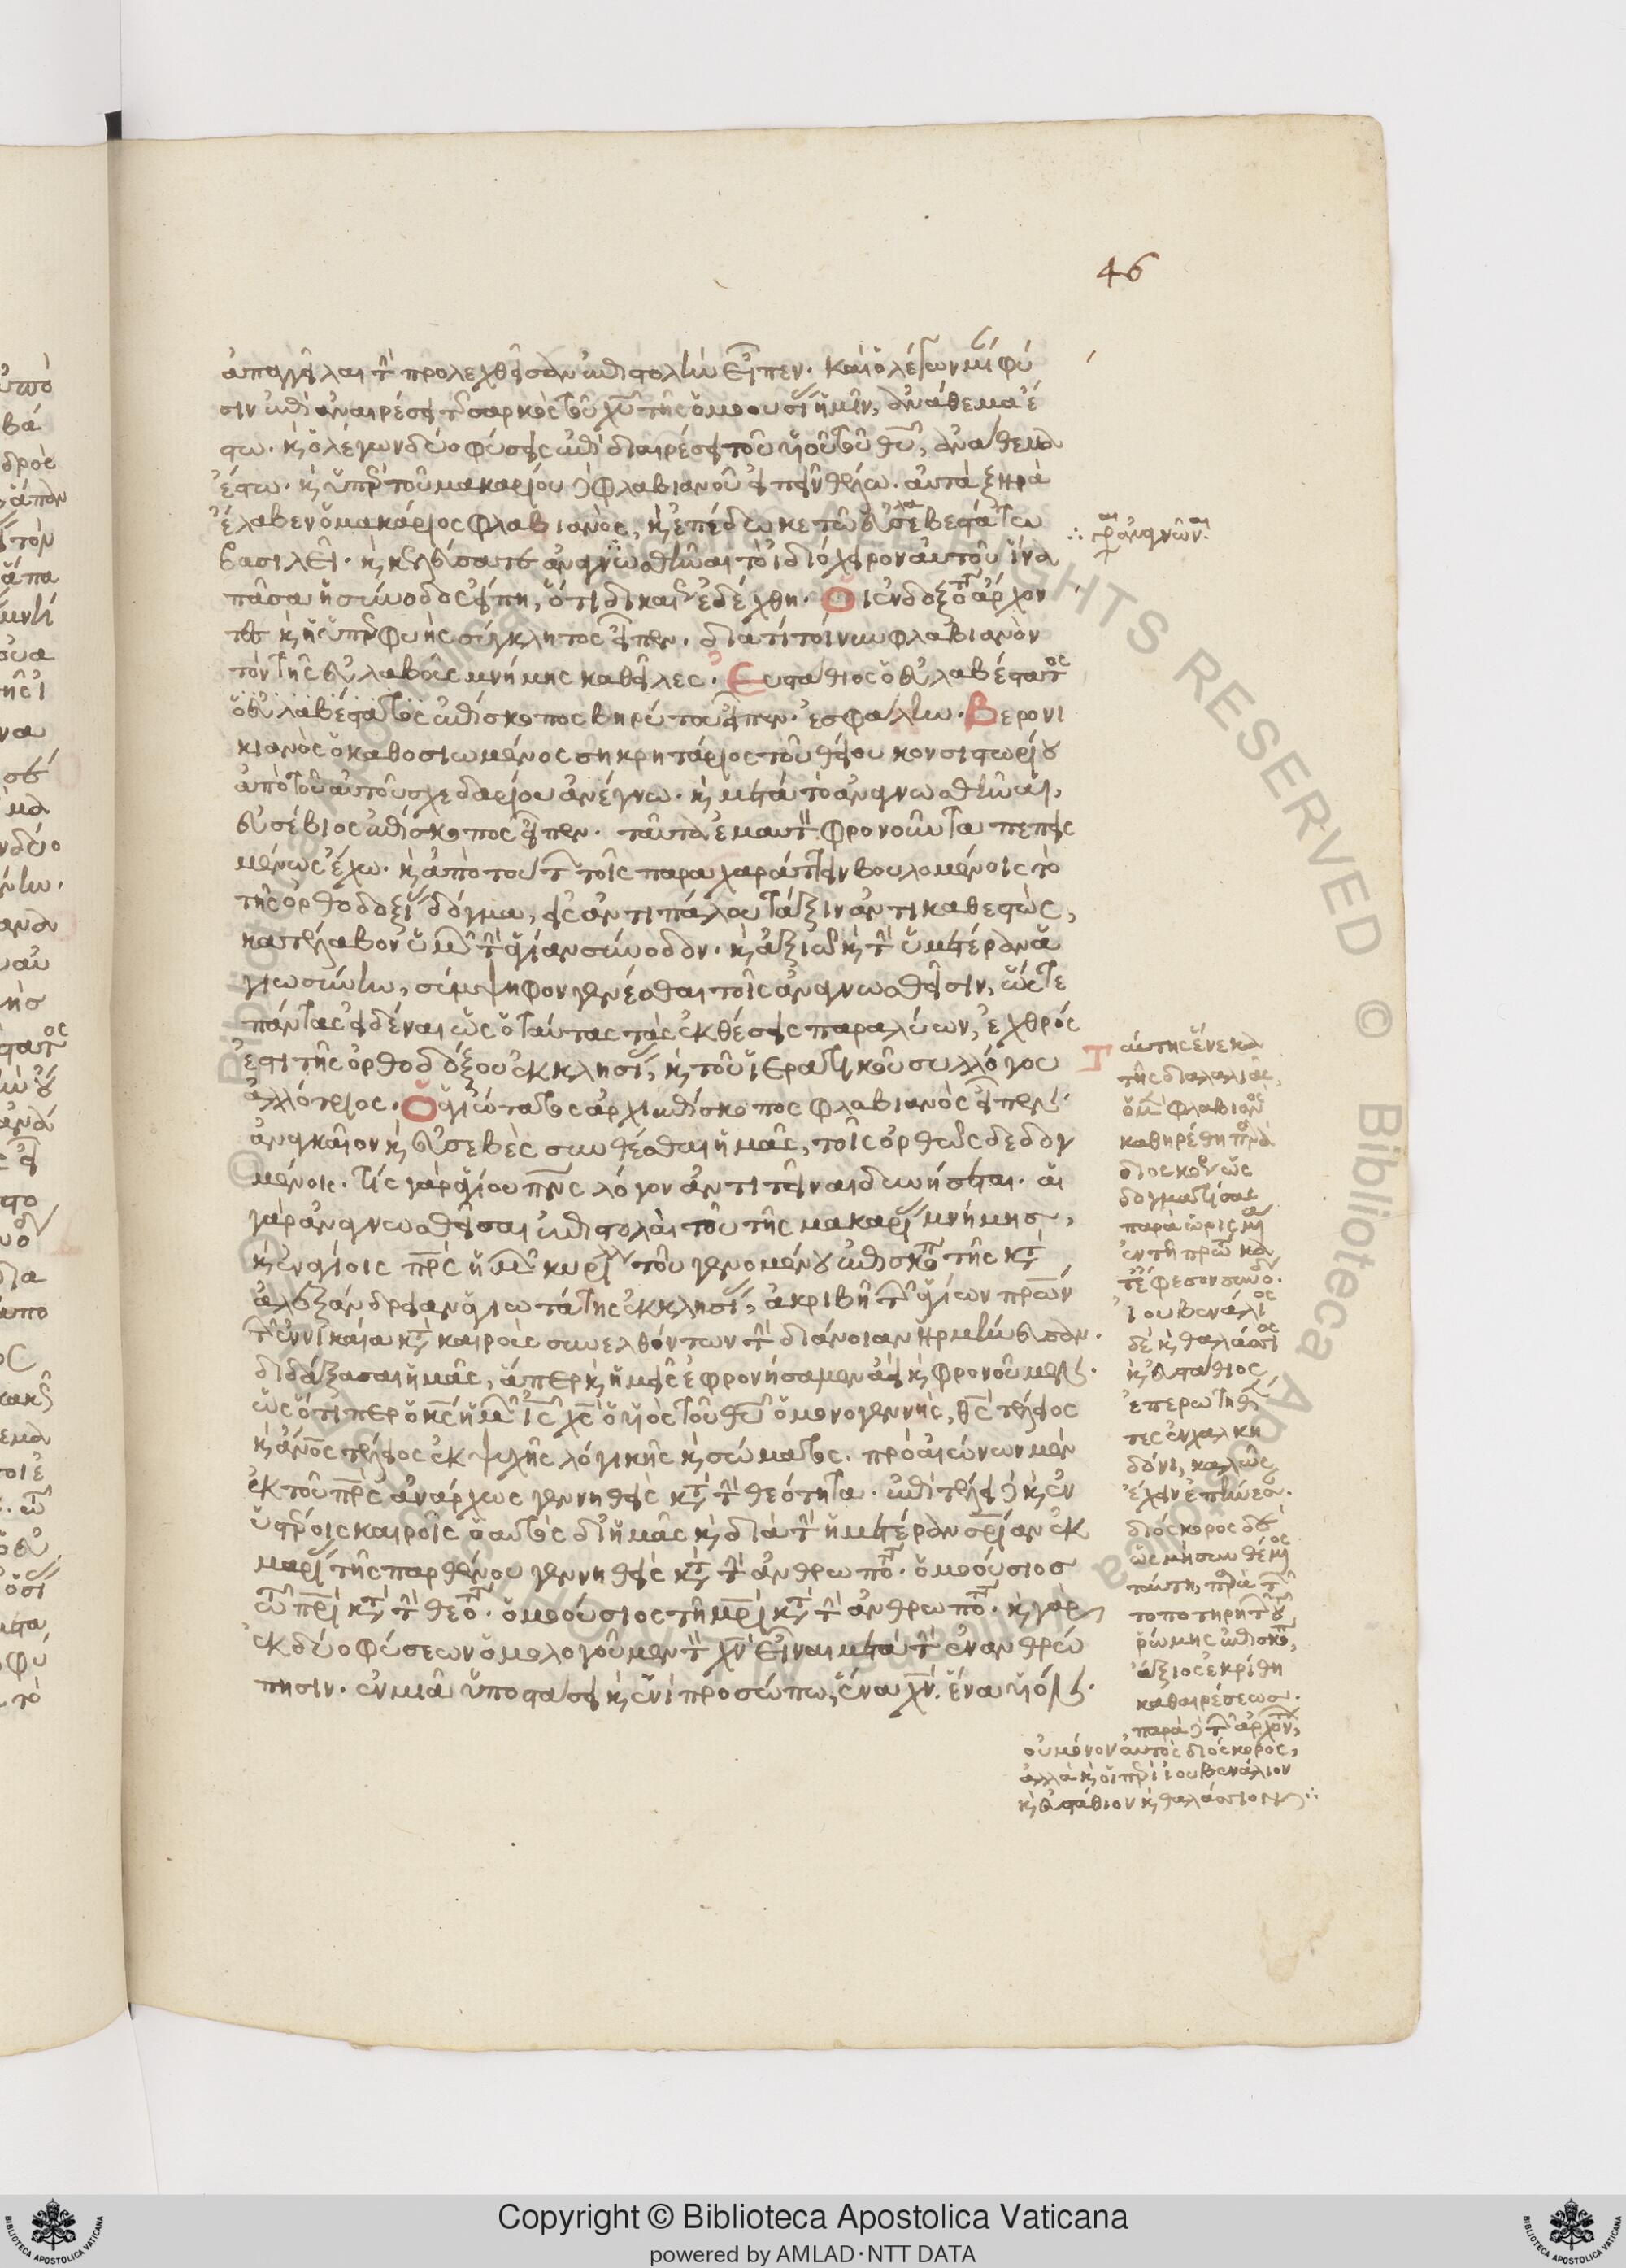 46
ἀπαγγεῖλαι τὴν προλεχθεῖσαν ἐπιστολὴν εἶπεν. καὶ ὁ λέγων μίαν φύ
σιν ἐπὶ ἀναιρέσει τῆς σαρκὸς τοῦ χυ τῆς ὁμοουσίου ἡμῖν, ἀνάθεμα ἔ
στω. κ ὁ λέγων δύο φύσεις ἐπὶ διαιρέσει τοῦ υἱοῦ τοῦ θυ, ἀνάθεμα
ἔστω. κ ὑπὲρ τοῦ μακαρίου δὲ φλαβιανοῦ εἰπεῖν θέλω. αὐτὰ ξηρὰ
ἔλαβεν ὁ μακάριος φλαβιανὸς, κ ἐπέδωκε τῶ εὐσεβεστάτω
βασιλεῖ. κ κελεύσατε ἀναγνωσθῆναι τὸ ἰδιόχειρον αὐτοῦ ἵνα
πᾶσα ἡ σύνοδος εἴπη, ὅτι δικαίως ἐδέχθη. Οἱ ἐνδοξότατοι ἄρχον
τες κ ἡ ὑπερφυὴς σύγκλητος εἶπεν. διατί τοίνυν φλαβιανὸν
τὸν τῆς εὐλαβοῦς μνήμης καθεῖλες. Εὐστάθιος ὁ εὐλαβέστατος
ὁ εὐλαβέστατος ἐπίσκοπος βηρύτου εἶπεν. ἐσφάλην. Βερονι
κιανὸς ὁ καθοσιωμένος σηκρητάριος τοῦ θείου κονσιστωρίου
ἀπὸ τοῦ αὐτοῦ σχεδαρίου ἀνέγνω. κ μετὰ τὸ ἀναγνωσθῆναι,
εὐσέβιος ἐπίσκοπος εἶπεν. ταῦτα ἐμαυτὸν φρονοῦντα πεπεισ
μένως ἔχω. κ ἀπὸ τούτων τοῖς παραχαράττειν βουλομένοις τὸ
τῆς ὀρθοδοξίας δόγμα, εἰς ἀντιπάλου τάξιν ἀντικαθεστὼς,
κατέλαβον ὑμῶν τὴν ἁγίαν σύνοδον. κ ἀξιῶ κ τὴν ὑμετέραν ἁ
γιωσύνην, σύμψηφον γενέσθαι τοῖς ἀναγνωσθεῖσιν, ὥστε
πάντας εἰδέναι ὡς ὁ ταύτας τὰς ἐκθέσεις παραλύων, ἐχθρός
ἐστι τῆς ὀρθοδόξου ἐκκλησίας, κ τοῦ ἱερατικοῦ συλλόγου
ἀλλότριος. Ὁ ἁγιώτατος ἀρχιεπίσκοπος φλαβιανὸς εἶπεν.
ἀναγκαῖον κ εὐσεβὲς συνθέσθαι ἡμᾶς, τοῖς ὀρθῶς δεδογ
μένοις. τίς γὰρ ἁγίου πνς λόγον ἀντιτείναι δυνήσεται. αἱ
γὰρ ἀναγνωσθεῖσαι ἐπιστολαὶ τοῦ τῆς μακαρίας μνήμησ,
κ ἐν ἁγίοις πρς ἡμῶν κυρίλλου τοῦ γενομένου ἐπισκόπου τῆς κατὰ
ἀλεξάνδρειαν ἁγιωτάτης ἐκκλησίας, ἀκριβῆ τῶν ἁγίων πρων
τῶν ἐν νικαία κατὰ καιροὺς συνελθόντων τὴν διάνοιαν ἡρμήνευσαν.
διδάξασαι ἡμᾶς, ἅπερ κ ἡμεῖς ἐφρονήσαμεν ἀεὶ κ φρονοῦμεν.
ὡς ὅτιπερ ὁ κς ἡμῶν ις χς ὁ υἱὸς τοῦ θυ ὁ μονογενὴς, θς τέλειος
κ ανος τέλειος ἐκ ψυχῆς λογικῆς κ σώματος. πρὸ αἰώνων μὲν
ἐκ τοῦ πρς ἀνάρχως γεννηθεὶς κατὰ τὴν θεότητα. ἐπὶ τέλει δὲ κ ἐν
ὑστέροις καιροῖς ὁ αὐτὸς δι' ἡμᾶς κ διὰ τὴν ἡμετέραν σριαν ἐκ
μαρίας τῆς παρθένου γεννηθεὶς κατὰ τὴν ἀνθρωπότητα. ὁμοούσιοσ
τῶ πρι κατὰ τὴν θεότητα. ὁμοούσιος τῆ μρι κατὰ τὴν ἀνθρωπότητα. κ γὰρ
ἐκ δύο φύσεων ὁμολογοῦμεν τὸν χν εἶναι μετὰ τὴν ἐνανθρώ
πησιν. ἐν μιᾶ ὑποστάσει κ ἑνὶ προσώπω, ἕνα χν. ἕνα υἱόν.
ταύτης ἕνεκα
τῆς διαλαλίας,
ὁ μὲν φλαβιανὸς
καθηρέθη παρὰ
διοσκόρου ὡς
δογματίσας
παρὰ ὡρισμένα
ἐν τῆ πρώτη κα
τ' ἔφεσον συνόδω.
ἰουβενάλιος
δὲ κ θαλάσσιος
κ εὐστάθιος
ἐπερωτηθέν
τες ἐν χαλκη
δόνι, καλῶς
ἔχειν ἐπήνεσαν.
διόσκορος δὲ
ὡς μὴ συνθέμενος
ταύτη, παρὰ τῶν
τοποτηρητῶν τοῦ
ῥώμης ἐπισκόπου,
ἄξιος ἐκρίθη
καθαιρέσεωσ.
παρὰ δὲ τῶν ἀρχόντων,
οὐ μόνον αὐτὸς διόσκορος,
ἀλλὰ κ οἱ περὶ ἰουβενάλιον
κ εὐστάθιον κ θαλάσσιον
Copyright © Biblioteca Apostolica Vaticana
powered by AMLAD·NTT DATA